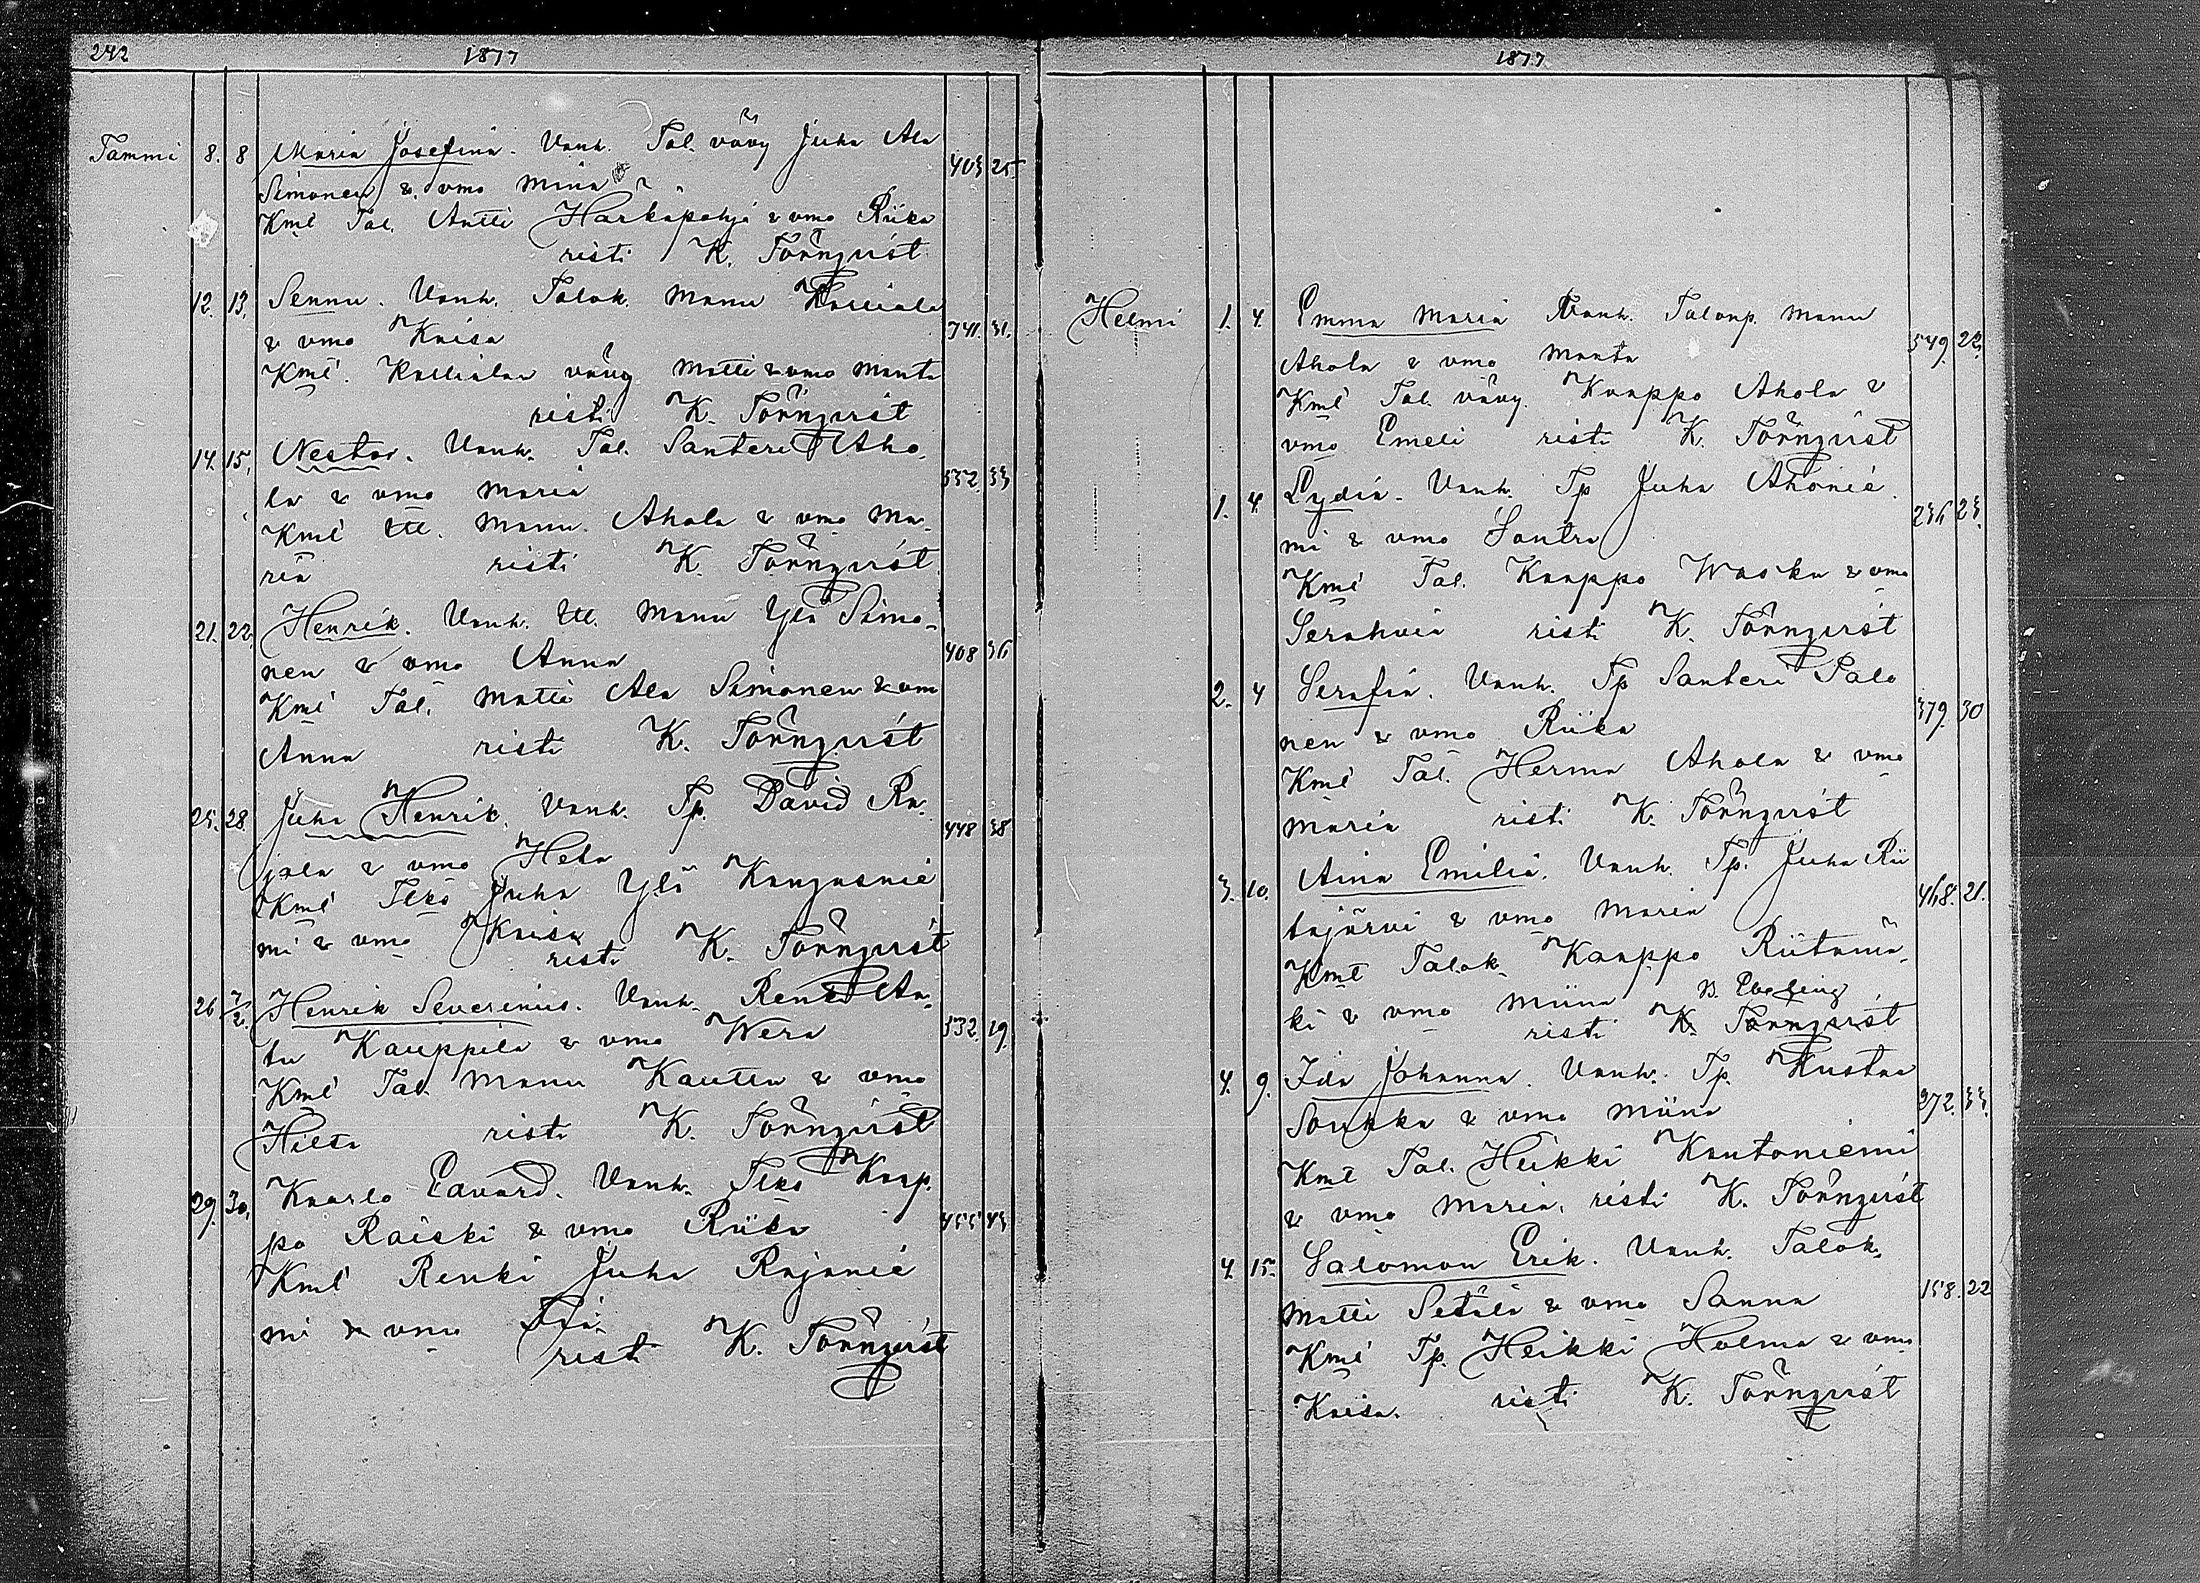 242 1877
Tammi 8. 8 Maria Josefina. Vanh. Tal. vävy Juha Ala 403 25
Simonen & vmo Miina
Kmt Tal. Antti Härkäpohja & vmo Riika
risti K. Törnqvist
12. 13. Sennu. Vanh. Talok. Manu 741. 31.
& vmo Kaisa
Kmt. vävy Matti & vmo Manta
risti K. Törnqvist
14. 15. Nestor. Vanh. Tal. Santeri Aho- 552. 33
la & vmo Maria
Kmt Itl. Manu Ahola & vmo Ma-
ria risti K. Törnqvist
21. 22. Henrik. Vanh. Itl. Manu Ylä Simo- 408 36
nen & vmo Anna
Kmt Tal. Matti Ala Simonen & vm
Anna risti K. Törnqvist
25. 28. Juha Henrik. Vanh. Tp. David Ra- 448 38
jala & vmo Heta
Kmt Itks Juha Ylä Kangasnie
mi & vmo Kaisa
risti K. Törnqvist
26 7/2. Henrik Severinus. Vanh. Renki An- 532. 19.
tu Kauppila & vmo Wera
Kmt Tal. Manu Kautta & vmo
Hilta risti K. Törnqvist
29. 30. Kaarlo Edvard. Vanh. Itks Kaap- 455 43
po Raiski & vmo Riika
Kmt Renki Juha Rajanie
mi & vmo
risti K. Törnqvist
1877
Helmi 1. 4. Emma Maria Vanh. Talonp. Manu 549. 22.
Ahola & vmo Manta
Kmt Tal. vävy. Kaappo Ahola &
vmo Emeli risti K. Törnqvist
1. 4. Lydia. Vanh. Tp Juha Ahonie 236 23.
mi & vmo Santra
Kmt Tal. Kaappo Waska & vmo
Serahvia risti K. Törnqvist
2. 4 Serafia. Vanh. Tp Santeri Palo 379. 30
nen & vmo Riika
Kmt Tal. Herma Ahola & vmo
Maria risti K. Törnqvist
3. 10. Aina Emilia. Vanh. Tp. Juha Rii 468. 21.
tajärvi & vmo Maria
Kmt Talok. Kaappo Riitamä-
ki & vmo Miina B. Ebeling
risti K. Törnqvist
4. 9. Ida Johanna. Vanh. Tp. Kustaa 272. 33.
Soukka & vmo Miina
Kmt Tal. Heikki Kautoniemi
& vmo Maria. risti K. Törnqvist
4. 15. Salomon Erik. Vanh. Talok. 158. 22
Matti Setälä & vmo Sanna
Kmt Tp. Heikki Holma & vmo
Kaisa. risti K. Törnqvist